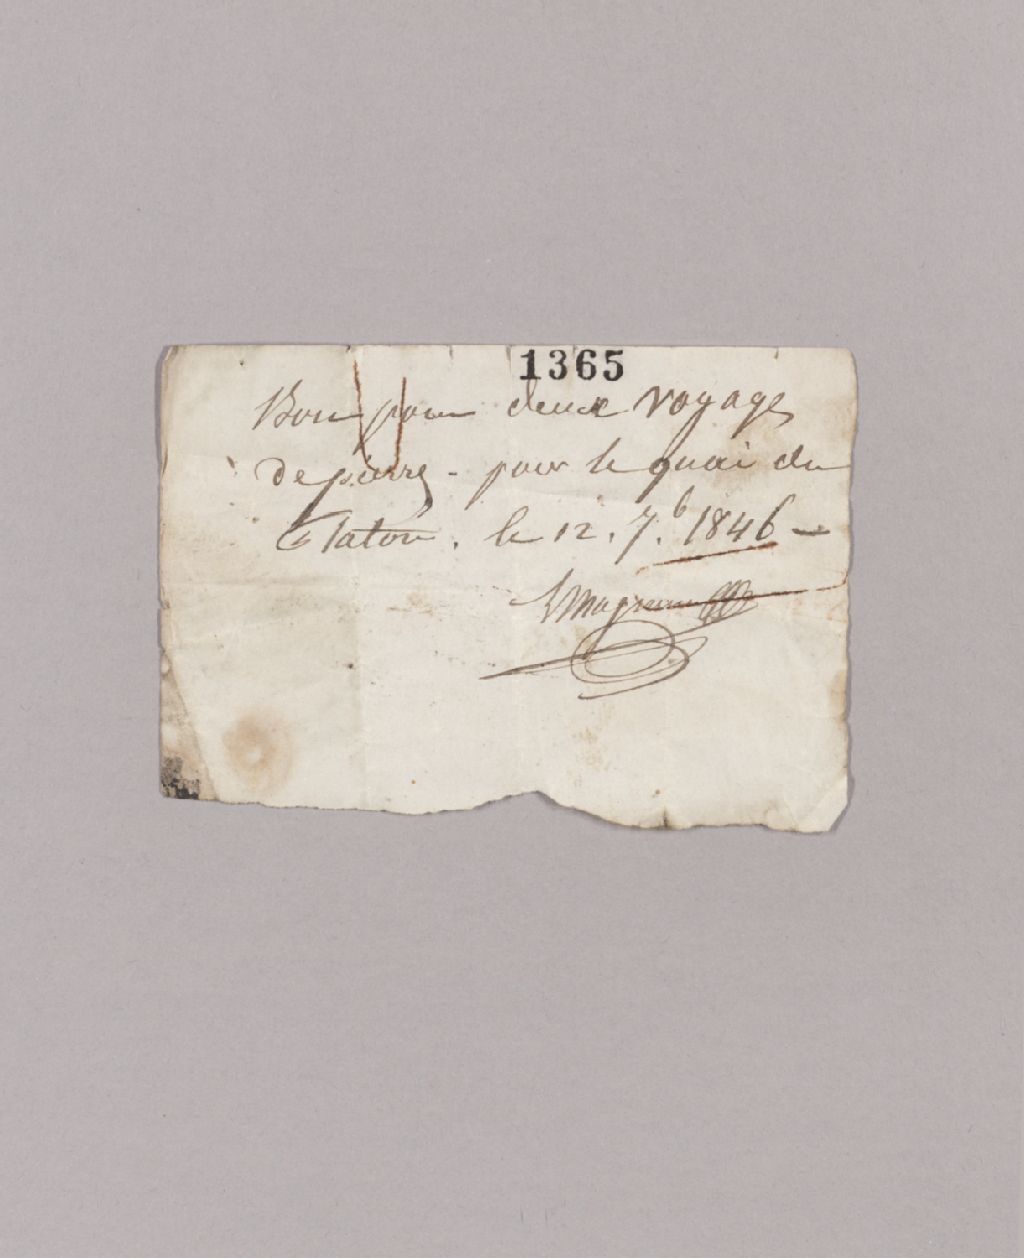 1365
Bon pour deux voyages
de pierre - pour le quai du
le 12. 7.b 1846 -